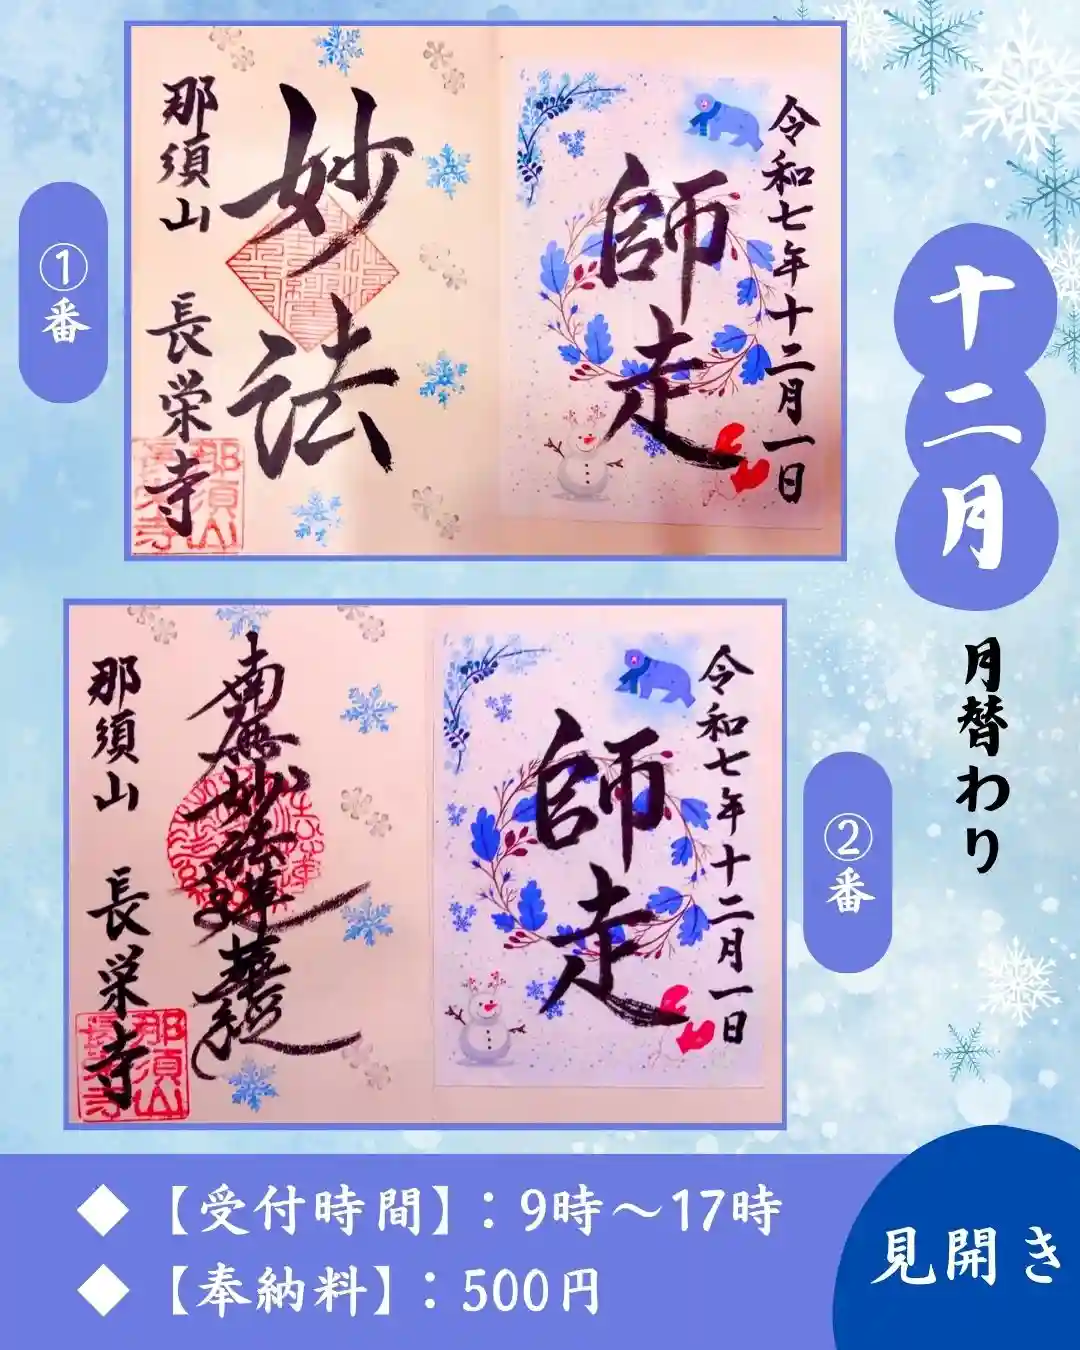 十二月
月替わり
①番
令和七年十二月一日
師走
妙法
那須山 長栄寺
那須山
長栄寺
②番
令和七年十二月一日
師走
南無妙法蓮華経
那須山 長栄寺
那須山
長栄寺
◆【受付時間】：9時～17時
◆【奉納料】：500円
見開き